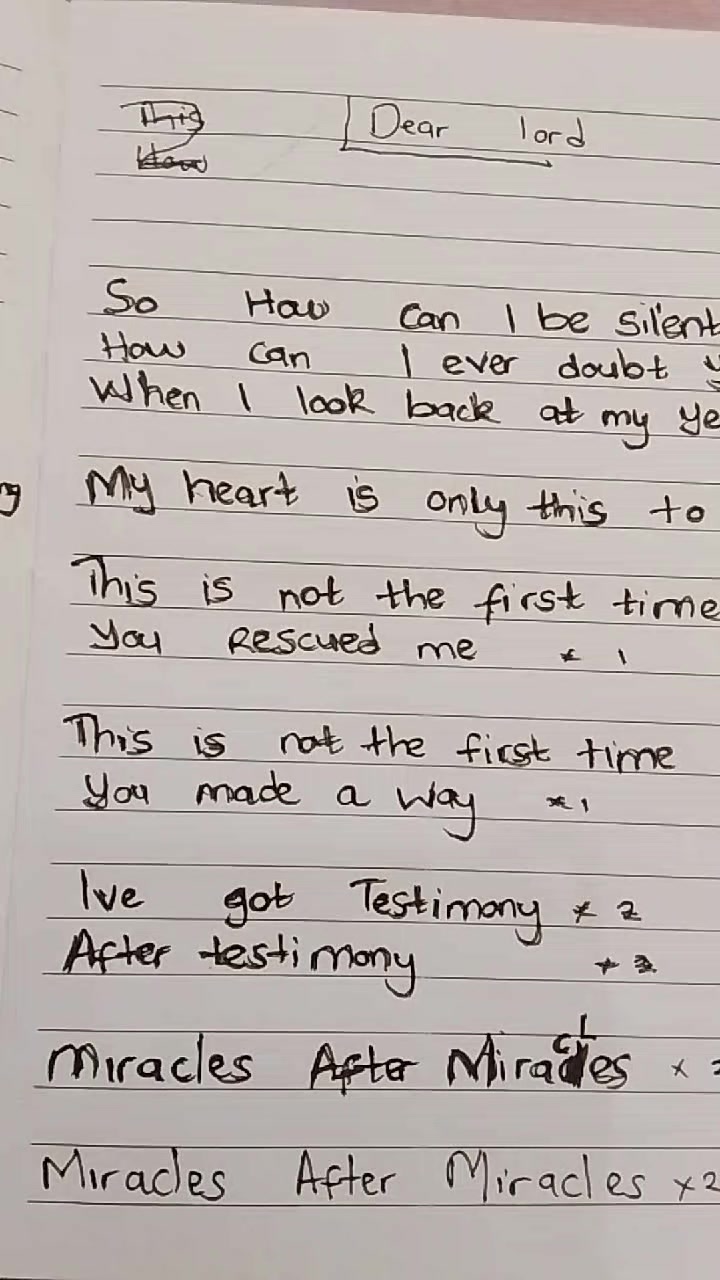 This
Dear lord
How
So How can I be silent
How can I ever doubt
When I look back at my
My heart is only this to
This is not the first time
You Rescued me * 1
This is not the first time
You made a way * 1
Ive got Testimony * 2
After testimony
Miracles After Miracles x
Miracles After Miracles x2